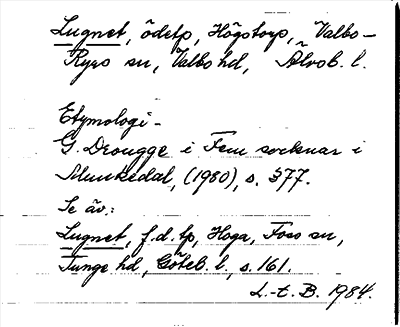 Lugnet, ödetp, Högstorp, Valbo-
Ryrs sn, Valbo hd, Älvsb. l.
Etymologi-
G. Drougge i Fem socknar i
Munkedal, (1980), s. 377.
Se äv.:
Lugnet, f.d. tp, Hoga, Foss sn,
Tunge hd, Göteb. l., s. 161.
L.-t. B. 1984.